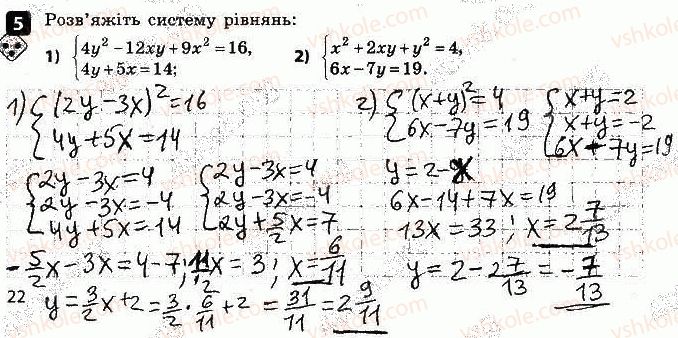 5 Розв'яжіть систему рівнянь:
1) {4y² −12xy+9x² =16,
4y+5x=14;
2) {x² +2xy+y² =4,
6x−7y=19.
1) {(2y−3x)²=16
4y+5x=14
{2y−3x=4
2y−3x=−4
4y+5x=14
{2y−3x=4
2y−3x=−4
2y+5/2x=7
−5/2x−3x=4−7; 11/2x=3; x=6/11
22
y=3/2x+2=3/2·6/11+2=31/11=2 9/11
2) {(x+y)²=4
6x−7y=19
{x+y=2
x+y=−2
6x−7y=19
y=2−x
6x−14+7x=19
13x=33; x=2 7/13
y=2−2 7/13=−7/13
vshkole.com